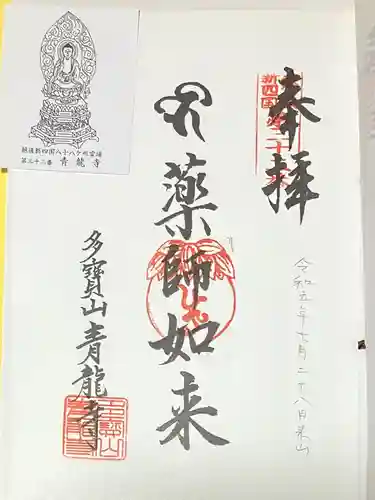 奉拝
新四国
薬師如来
多寳山青龍寺
令和五年七月二十八日来山
越後新四国八十八ケ所霊場
第三十二番 青龍寺